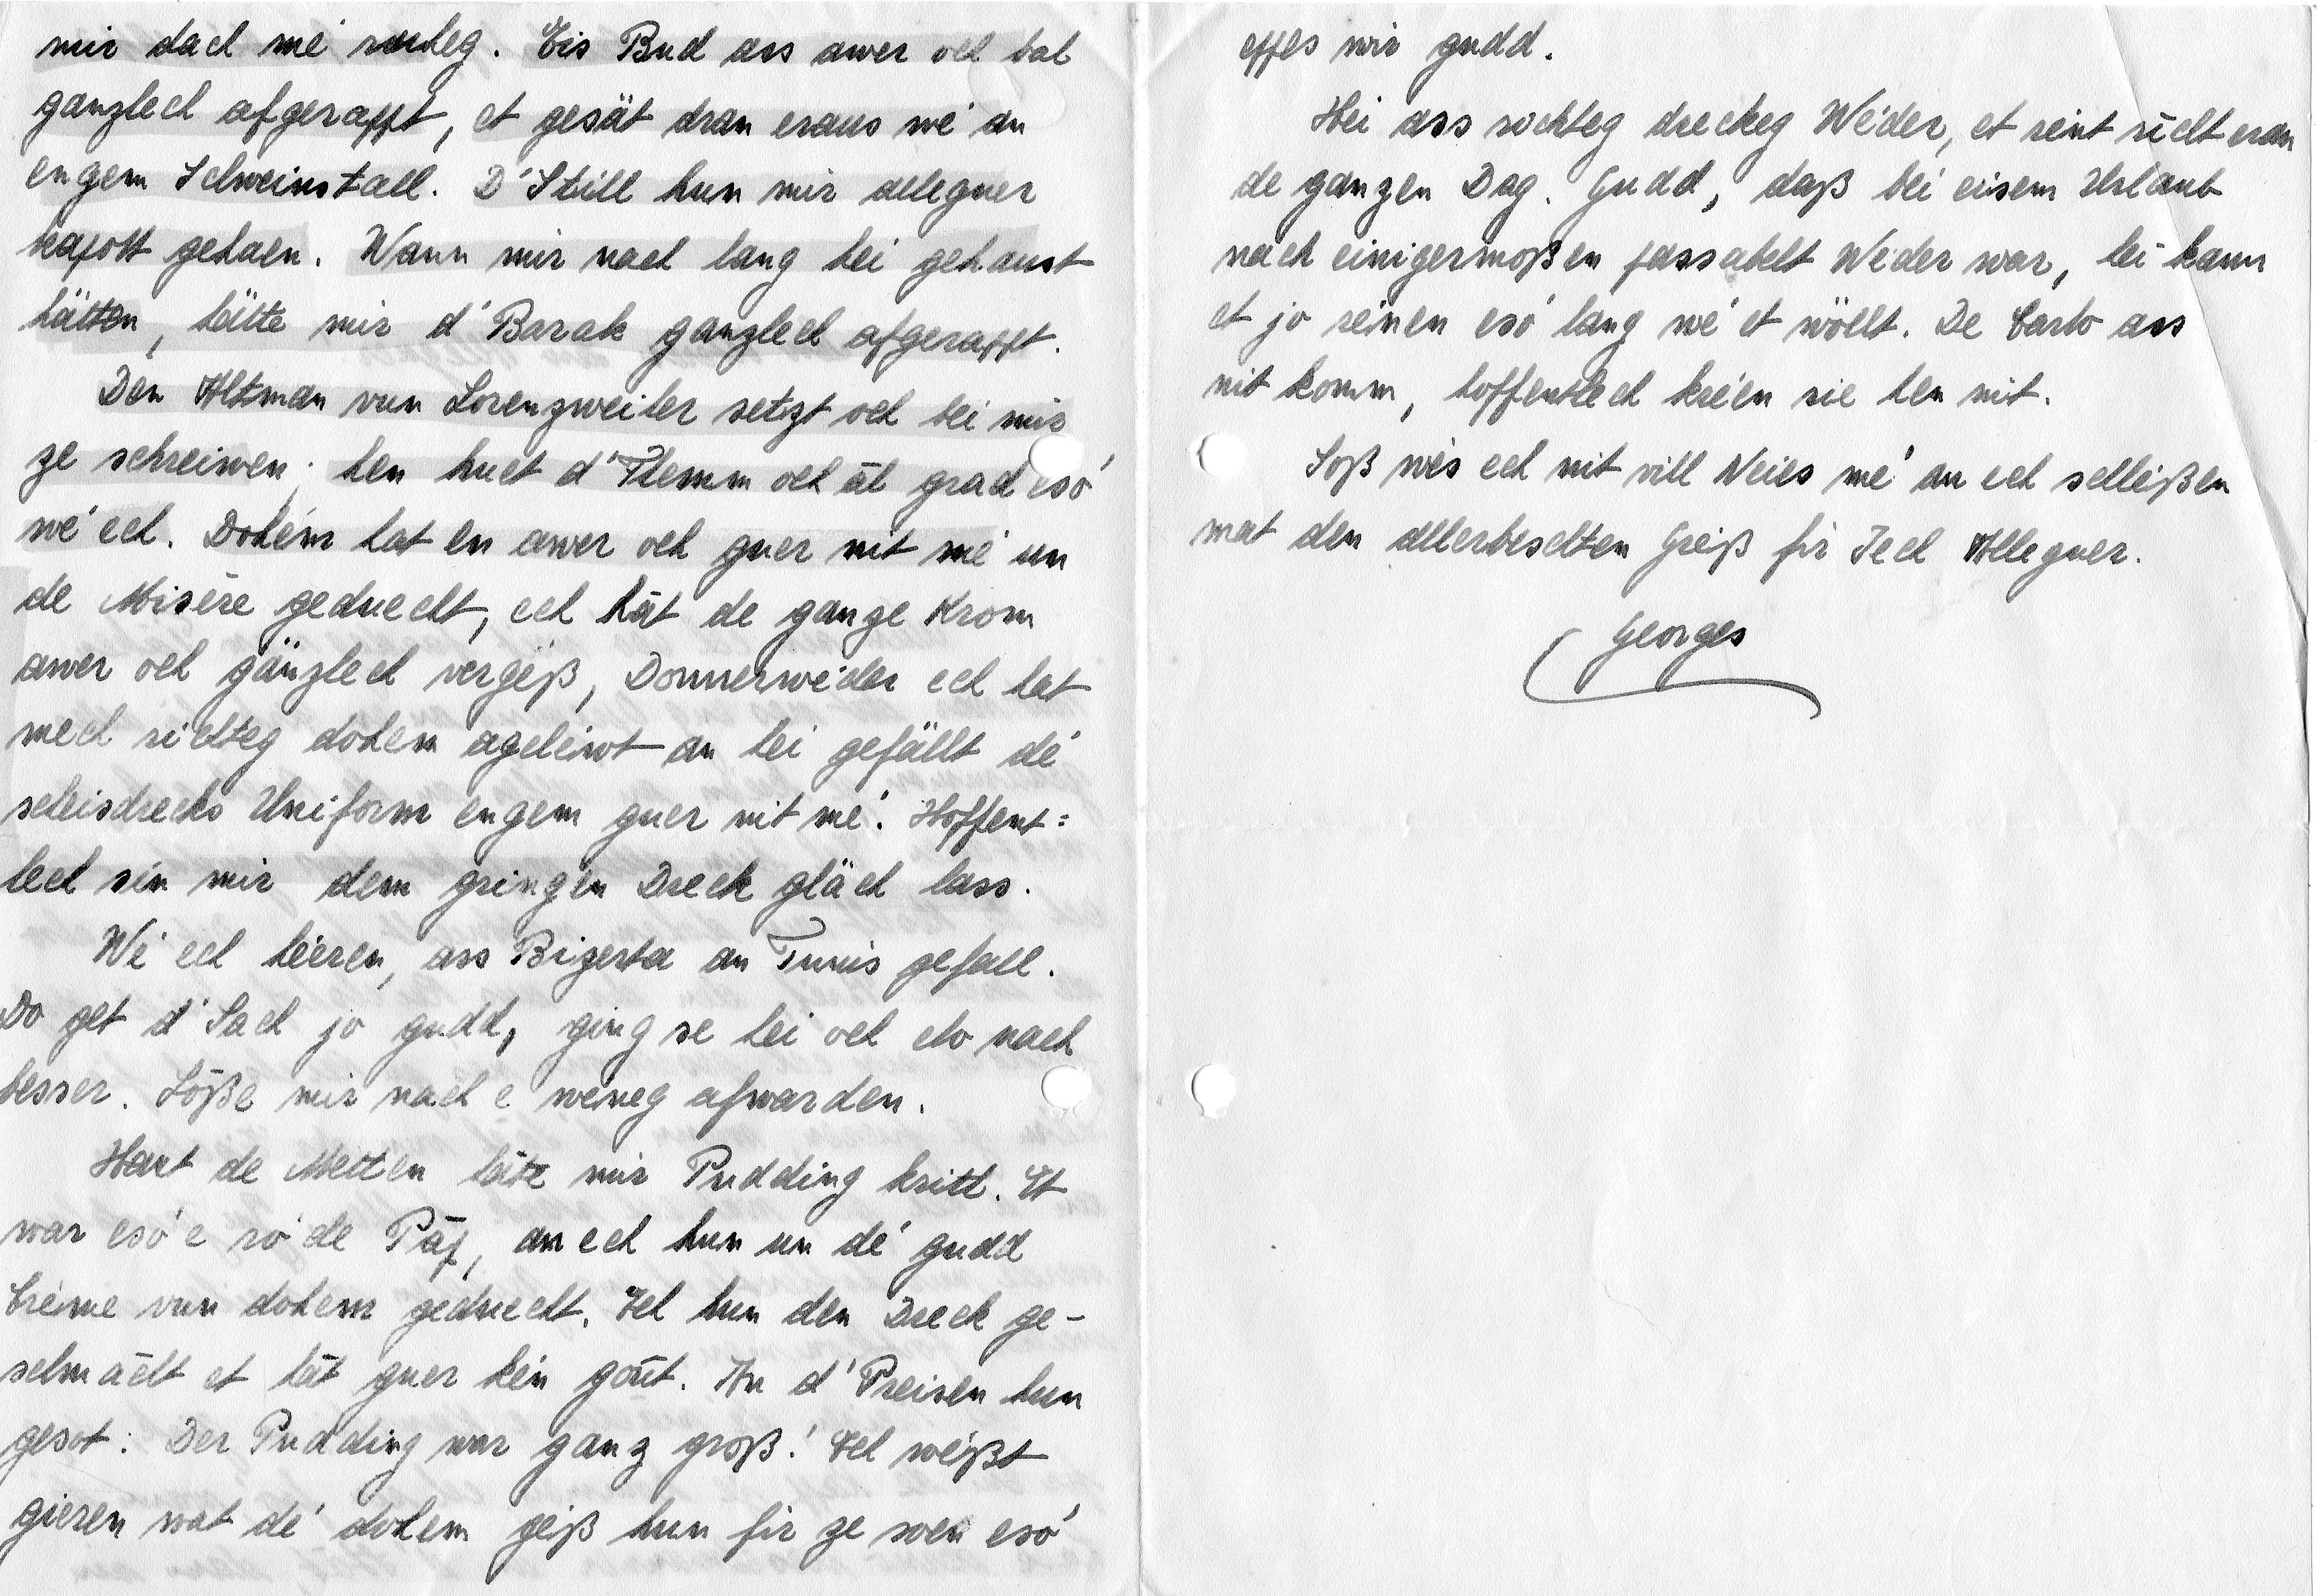 mir dach mé roueg. Eis Bud ass awer och bal
ganzlech afgerappt, et gesät dran eraus wé an
engem Schweinstall. D'Still hun mir alleguer
kapott gehaen. Wann mir nach lang hei gehaust
hätten, hätte mir d'Barak ganzlech afgerappt.
Den Altman vun Lorenzweiler setzt och bei mir
ze schreiwen; hen huet d'Flemm och äl grad esó
wé ech. Dohém hat en awer och guer nit mé un
de Misère geduecht, ech hät de ganze Krom
awer och gänzlech vergeß, Donnerwéder ech hat
mech richteg dohem ageleiwt an hei gefällt dé
scheisdrecks Uniform engem guer nit mé. Hoffent=
lech sin mir dem gringen Dreck gläch lass.
Wé ech héeren, ass Bizerta an Tunis gefall.
Do get d'Sach jo gudd, ging se hei och elo nach
besser. Loße mir nach e weneg afwarden.
Haut de Metten häte mir Pudding kritt. Et
war esó e ró'de Päp, an ech hun un dé gudd
Crème vun dohem geduecht. Ech hun den Dreck ge-
schmächt et hät guer kén goût. An d'Preisen hun
gesot: Der Pudding war ganz groß! Ech wéißt
gieren wat dé dohem geiß hun fir ze soen esó
eppes wir gudd.
Hei ass rochteg dreckeg Wéder, et reint rücht eran
de ganzen Dag. Gudd, daß bei eisem Urlaub
nach einigermoßen passabelt Wéder war, hei kann
et jo reinen esó lang wé et wöllt. De Carlo ass
nit komm, hoffentlech kréen sie hen nit.
Soß wés ech nit vill Neies mé an ech schleißen
mat den allerbeschten Greiß fir Iech Alleguer.
Georges